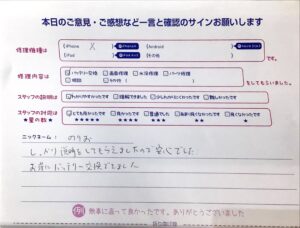 本日のご意見・ご感想など一言と確認のサインお願いします
修理機種は
iPhone X
Android
iPad
その他
です。
修理内容は
バッテリー交換 画面修理 水没修理 パーツ修理
相談 その他
をしてもらいました。
スタッフの説明は
わかりやすかったです 理解できました 少しわかりにくかったです 難しかったです
スタッフの対応は
★の数★
とても良かったです 良かったです 普通でした 良くなかったです
★★★★★ ★★★★ ★★★ ★★ ★
ニックネーム： のりお
してもらえましたので安心でした
バッテリー交換できました
例 無事に直って良かったです。ありがとうございました